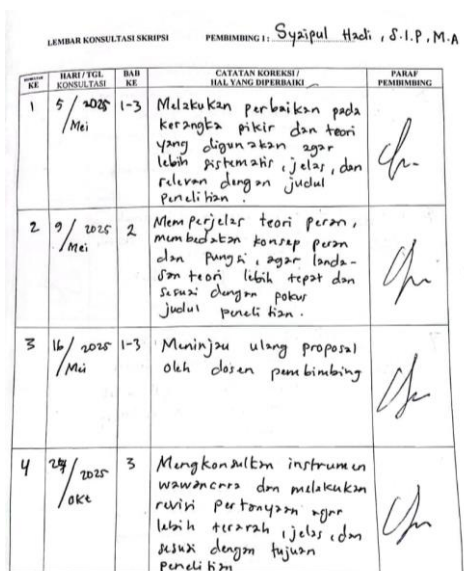 LEMBAR KONSULTASI SKRIPSI PEMBIMBING I : Syaipul Hadi, S.I.P, M.A
KE HARI / TGL. KONSULTASI BAB KE CATATAN KOREKSI / HAL YANG DIPERBAIKI PARAF PEMBIMBING
1 5/Mei 2025 1-3 Melakukan perbaikan pada
kerangka pikir dan teori
yang digunakan agar
lebih sistematis, jelas, dan
relevan dengan judul
penelitian.
2 9/Mei 2025 2 Memperjelas teori peran,
membedakan konsep peran
dan pungsi, agar landa-
san teori lebih tepat dan
sesuai dengan pokus
judul penelitian.
3 16/Mei 2025 1-3 Meninjau ulang proposal
oleh dosen pembimbing
4 2025 /okt 3 Mengkonsultan instrumen
wawancara dan melakukan
revisi pertanyaan agar
lebih terarah, jelas, dan
sesuai dengan tujuan
penelitian